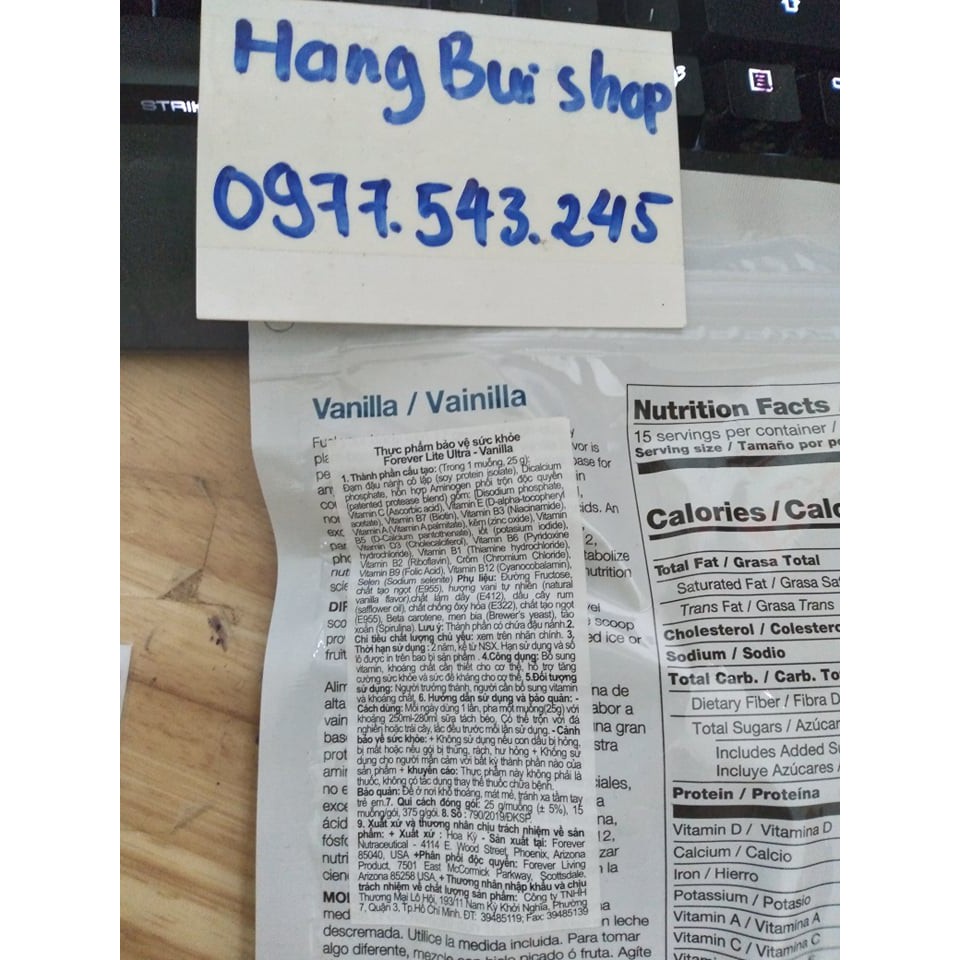 Hang Bui shop
0977.543.245
STRIK
Vanilla / Vainilla
Thực phẩm bảo vệ sức khỏe
Forever Lite Ultra - Vanilla
1. Thành phần cấu tạo: (Trong 1 muỗng, 25 g):
Đạm đậu nành cô lập (soy protein isolate), Dicalcium
phosphate, hỗn hợp Aminogen phối trộn độc quyền
(patented protease blend) gồm: (Disodium phosphate,
Vitamin C (Ascorbic acid), Vitamin E (D-alpha-tocopheryl
acetate), Vitamin B7 (Biotin), Vitamin B3 (Niacinamide),
Vitamin A (Vitamin A palmitate), kẽm (zinc oxide), Vitamin
B5 (D-Calcium pantothenate), iốt (potassium iodide),
Vitamin D3 (Cholecalciferol), Vitamin B6 (Pyridoxine
hydrochloride), Vitamin B1 (Thiamine hydrochloride),
Vitamin B2 (Riboflavin), Crôm (Chromium Chloride),
Vitamin B9 (Folic Acid), Vitamin B12 (Cyanocobalamin),
Selen (Sodium selenite) Phụ liệu: Đường Fructose,
chất tạo ngọt (E955), hương vani tự nhiên (natural
vanilla flavor),chất làm dầy (E412), dầu cây rum
(safflower oil), chất chống ôxy hóa (E322), chất tạo ngọt
(E955), Beta carotene, men bia (Brewer's yeast), tảo
xoắn (Spirulina). Lưu ý: Thành phần có chứa đậu nành.2.
Chỉ tiêu chất lượng chủ yếu: xem trên nhãn chính. 3.
Thời hạn sử dụng : 2 năm, kể từ NSX. Hạn sử dụng và số
lô được in trên bao bì sản phẩm . 4.Công dụng: Bổ sung
vitamin, khoáng chất cần thiết cho cơ thể, hỗ trợ tăng
cường sức khỏe và sức đề kháng cho cơ thể. 5.Đối tượng
sử dụng: Người trưởng thành, người cần bổ sung vitamin
và khoáng chất. 6. Hướng dẫn sử dụng và bảo quản: -
Cách dùng: Mỗi ngày dùng 1 lần, pha một muỗng(25g) với
khoảng 250ml-280ml sữa tách béo. Có thể trộn với đá
nghiền hoặc trái cây, lắc đều trước mỗi lần sử dụng. - Cảnh
báo về sức khỏe: + Không sử dụng nếu con dấu bị hỏng,
bị mất hoặc nếu gói bị thủng, rách, hư hỏng + Không sử
dụng cho người mẫn cảm với bất kỳ thành phần nào của
sản phẩm + khuyến cáo: Thực phẩm này không phải là
thuốc, không có tác dụng thay thế thuốc chữa bệnh.
Bảo quản: Để ở nơi khô thoáng, mát mẻ, tránh xa tầm tay
trẻ em.7. Qui cách đóng gói: 25 g/muỗng (± 5%), 15
muỗng/gói, 375 g/gói. 8. Số : 790/2019/ĐKSP
9. Xuất xứ và thương nhân chịu trách nhiệm về sản
phẩm: + Xuất xứ : Hoa Kỳ - Sản xuất tại: Forever
Nutraceutical - 4114 E. Wood Street, Phoenix, Arizona
85040, USA +Phân phối độc quyền: Forever Living
Product, 7501 East McCormick Parkway, Scottsdale,
Arizona 85258 USA + Thương nhân nhập khẩu và chịu
trách nhiệm về chất lượng sản phẩm: Công ty TNHH
Thương Mại Lô Hội, 193/11 Nam Kỳ Khởi Nghĩa, Phường
7, Quận 3, Tp.Hồ Chí Minh. ĐT: 39485119; Fax: 39485139
descremada. Utilice la medida incluida. Para tomar
algo diferente, mezcle con hielo picado ó fruta. Agite
Nutrition Facts
15 servings per container /
Serving size / Tamaño por
Calories / Calo
Total Fat / Grasa Total
Saturated Fat / Grasa Sa
Trans Fat / Grasa Trans
Cholesterol / Colestero
Sodium / Sodio
Total Carb. / Carb. To
Dietary Fiber / Fibra D
Total Sugars / Azúcar
Includes Added Su
Incluye Azúcares
Protein / Proteína
Vitamin D / Vitamina D
Calcium / Calcio
Iron / Hierro
Potassium / Potasio
Vitamin A / Vitamina A
Vitamin C / Vitamina C